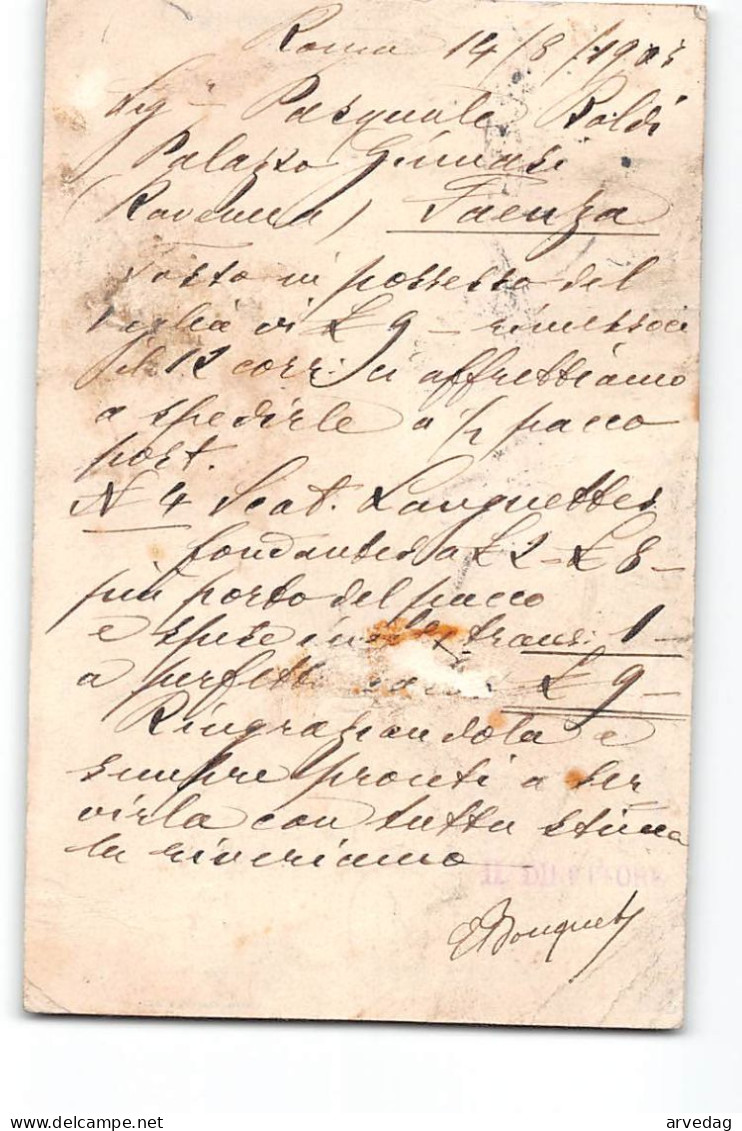 Roma 14/8/1903
Sig - Pasquale Baldi
Palazzo Ginnasi
(Ravenna) Faenza
Tosto in possesso del
Vaglia di £ 9 - rimessoci
il 12 corr: ci affrettiamo
a spedirle a ½ pacco
post.
N 4 Scat. Languettes
fondantes a £ 2 - £ 8 -
più porto del pacco
e spese trans: 1 -
a £ 9 -
Ringraziandola e
sempre pronti a ser
virla con tutta stima
la riveriamo
IL DIRETTORE
Bouquet
delcampe.net
arvedag